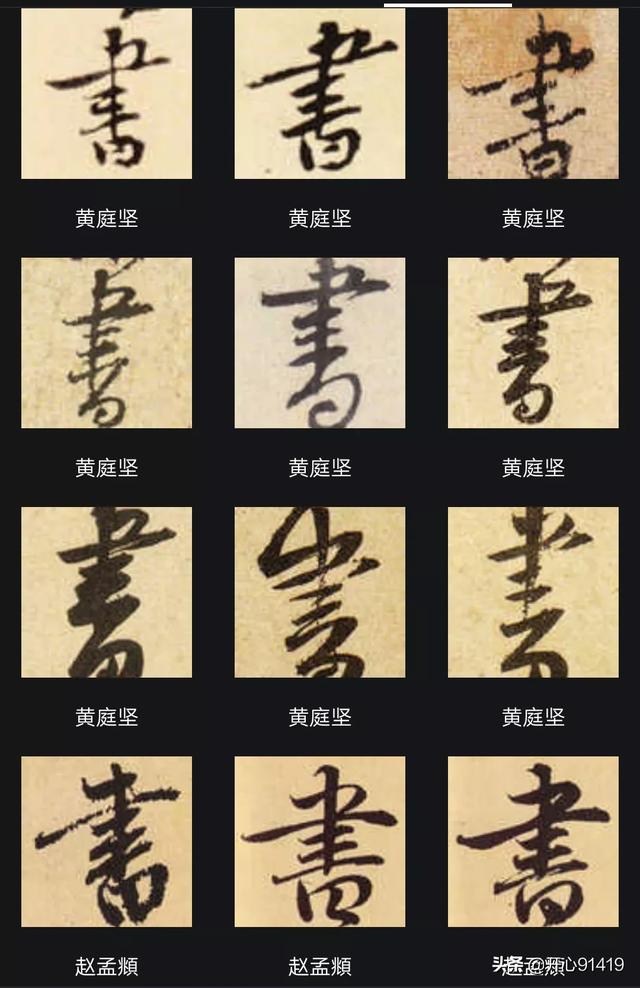 書 書 書
黄庭坚 黄庭坚 黄庭坚
書 書 書
黄庭坚 黄庭坚 黄庭坚
書 書 書
黄庭坚 黄庭坚 黄庭坚
書 書 書
赵孟頫 赵孟頫 赵孟頫
头条 @开心91419